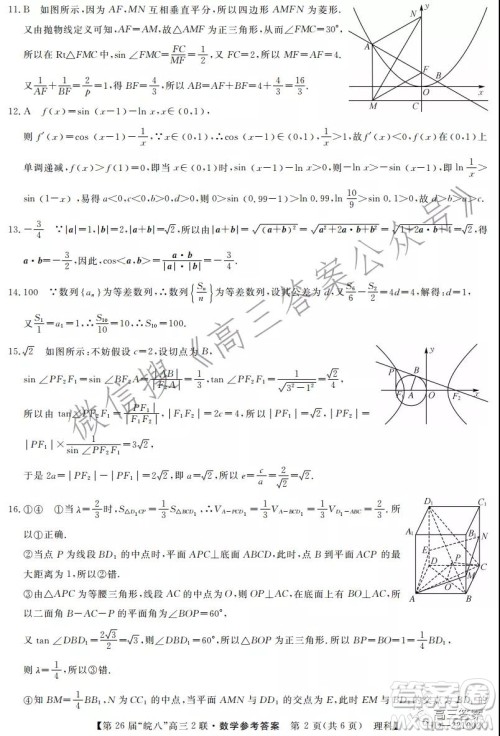 11.B 如图所示,因为AF、MN互相垂直平分,所以四边形AMFN为菱形.
又由抛物线定义可知,AF=MA,故△AFM为正三角形,从而∠FMC=30°.
所以在Rt△FMC中,sin∠FMC=FC/MF=1/2,又FC=2,所以MF=AF=4.
又1/AF+1/BF=2/p=1,得BF=4/3,所以AB=AF+BF=4+4/3=16/3.
12.A f(x)=sin(x-1)-ln x,x∈(0,1),
则f′(x)=cos(x-1)-1/x,∵x∈(0,1),∴cos(x-1)∈(0,1),1/x>1,故f′(x)<0,f(x)在(0,1)上
单调递减,f(x)>f(1)=0,即当x∈(0,1)时,sin(x-1)>ln x,即ln 1/x>
sin(1-x),易得a<0,c>0,b>0,d>0,则0>sin(0.99-1)>ln 0.99,ln 10/9>sin 0.1>0,故d>b>a>c.
13.-3/4 ∵|a|=1,|b|=2,|a+b|=√2,所以由|a+b|=√(a+b)²=√(a²+2a·b+b²)=√(1+2a·b+4)=√2,得
a·b=-3/2,因此,cos<a,b>=a·b/(|a|·|b|)=-3/4.
14.100 ∵数列{aₙ}为等差数列,∴数列{Sₙ/n}为等差数列,设其公差为d,
又S₁/1=a₁=1,∴S₁₀/10=10,∴S₁₀=100.
15.√2 如图所示:不妨假设c=2,设切点为B,
sin∠PF₂F₁=sin∠BF₂A=|AB|/|F₂A|=1/3,tan∠PF₂F₁=1/√(3²-1²)=√2/4,
所以由tan∠PF₂F₁=|PF₁|/|F₁F₂|,|F₁F₂|=2c=4,所以|PF₁|=√2,|PF₂|=
|PF₁|×1/sin∠PF₂F₁=3√2,
于是2a=|PF₂|-|PF₁|=2√2,即a=√2,所以e=c/a=2/√2=√2.
16.①④ ①当λ=2/3时,
所以①正确.
②当点P为线段BD₁的中点时,平面APC⊥底面ABCD,此时,点P到平面ABCD的最
大距离为1,所以②错.
③由△APC为等腰三角形,线段AC的中点为O,则OP⊥AC,又OB⊥AC,所
以二面角B-AC-P的平面角为∠BOP=60°,
又tan∠DBD₁=2√3/2=√3,则∠DBD₁=60°,所以△BOP为正三角形.所以BP=BO=1=1/4BD₁,
则λ=1/4,所以③错.
④知BM=1/4BB₁,同样在DD₁上取点E,使得DE=1/4DD₁,
【第26届“皖八”高三2联·数学参考答案 第2页(共6页) 理科】
微信搜《高三答案公众号》